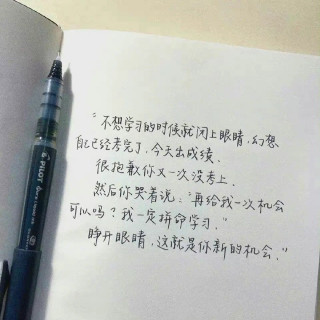 "不想学习的时候就闭上眼睛,幻想
自己已经考完了,今天出成绩.
很抱歉你又一次没考上.
然后你哭着说:"再给我一次机会
可以吗?我一定拼命学习."
睁开眼睛,这就是你新的机会."
PILOT